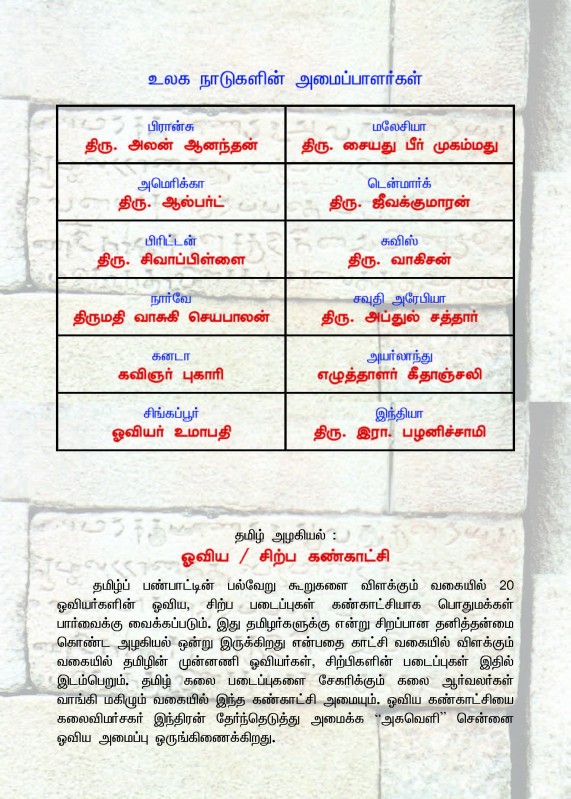 உலக நாடுகளின் அமைப்பாளர்கள்
பிரான்சு
திரு. அலன் ஆனந்தன்
மலேசியா
திரு. சையது பீர் முகம்மது
அமெரிக்கா
திரு. ஆல்பர்ட்
டென்மார்க்
திரு. ஜீவக்குமாரன்
பிரிட்டன்
திரு. சிவாப்பிள்ளை
சுவிஸ்
திரு. வாகிசன்
நார்வே
திருமதி வாசுகி செயபாலன்
சவுதி அரேபியா
திரு. அப்துல் சத்தார்
கனடா
கவிஞர் புகாரி
அயர்லாந்து
எழுத்தாளர் கீதாஞ்சலி
சிங்கப்பூர்
ஓவியர் உமாபதி
இந்தியா
திரு. இரா. பழனிச்சாமி
தமிழ் அழகியல் :
ஓவிய / சிற்ப கண்காட்சி
தமிழ்ப் பண்பாட்டின் பல்வேறு கூறுகளை விளக்கும் வகையில் 20
ஓவியர்களின் ஓவிய, சிற்ப படைப்புகள் கண்காட்சியாக பொதுமக்கள்
பார்வைக்கு வைக்கப்படும். இது தமிழர்களுக்கு என்று சிறப்பான தனித்தன்மை
கொண்ட அழகியல் ஒன்று இருக்கிறது என்பதை காட்சி வகையில் விளக்கும்
வகையில் தமிழின் முன்னணி ஓவியர்கள், சிற்பிகளின் படைப்புகள் இதில்
இடம்பெறும். தமிழ் கலை படைப்புகளை சேகரிக்கும் கலை ஆர்வலர்கள்
வாங்கி மகிழும் வகையில் இந்த கண்காட்சி அமையும். ஓவிய கண்காட்சியை
கலைவிமர்சகர் இந்திரன் தேர்ந்தெடுத்து அமைக்க “அகவெளி” சென்னை
ஓவிய அமைப்பு ஒருங்கிணைக்கிறது.